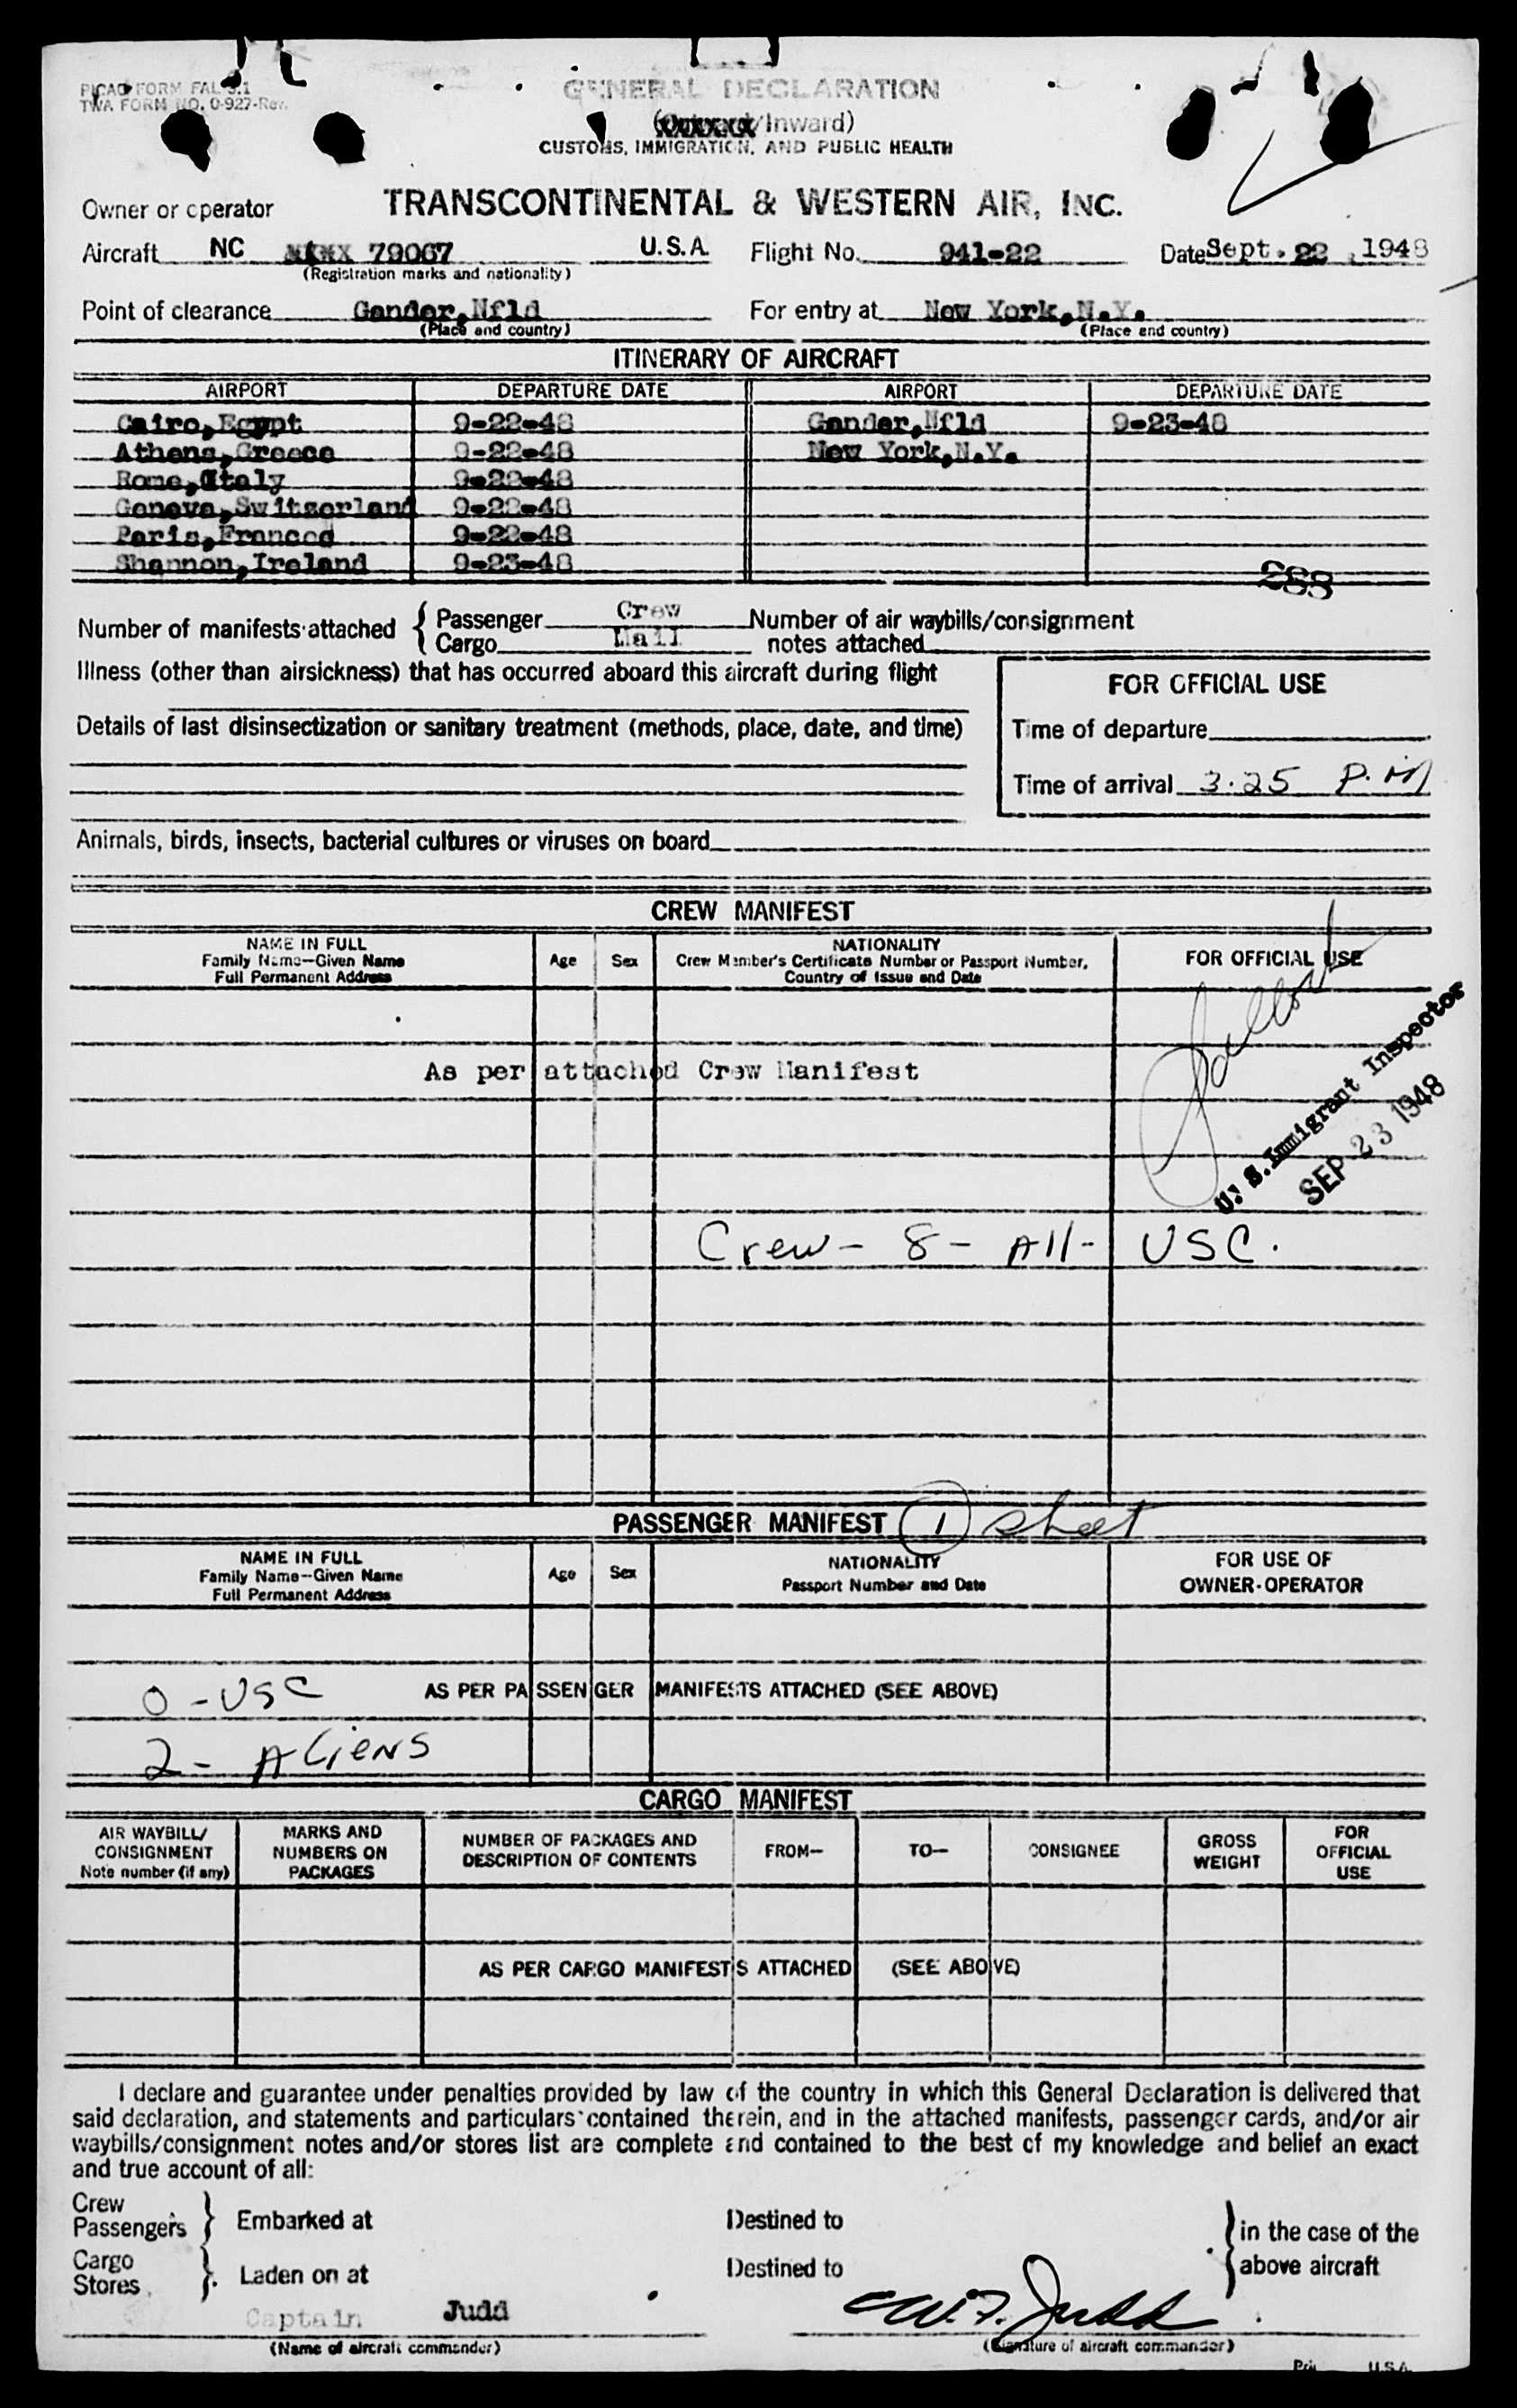 PICAO FORM FAL 3.1
TWA FORM NO. 0-927-Rev.
GENERAL DECLARATION
(Outward/Inward)
CUSTOMS, IMMIGRATION, AND PUBLIC HEALTH
Owner or operator TRANSCONTINENTAL & WESTERN AIR, INC.
Aircraft NC 79067 U.S.A. Flight No. 941-22 Date Sept. 22, 1948
(Registration marks and nationality)
Point of clearance Gander, Nfld For entry at New York, N.Y.
(Place and country) (Place and country)
ITINERARY OF AIRCRAFT
AIRPORT DEPARTURE DATE AIRPORT DEPARTURE DATE
Cairo, Egypt 9-22-48 Gander, Nfld 9-23-48
Athens, Greece 9-22-48 New York, N.Y.
Rome, Italy 9-22-48
Geneva, Switzerland 9-22-48
Paris, Franced 9-22-48
Shannon, Ireland 9-23-48
288
Number of manifests attached { Passenger Crew Number of air waybills/consignment
Cargo Mail notes attached
Illness (other than airsickness) that has occurred aboard this aircraft during flight
FOR OFFICIAL USE
Details of last disinsectization or sanitary treatment (methods, place, date, and time)
Time of departure
Time of arrival 3.25 P.M
Animals, birds, insects, bacterial cultures or viruses on board
CREW MANIFEST
NAME IN FULL
Family Name—Given Name
Full Permanent Address
Age Sex
NATIONALITY
Crew Member's Certificate Number or Passport Number,
Country of Issue and Date
FOR OFFICIAL USE
As per attached Crew Manifest
U. S. Immigrant Inspector
SEP 23 1948
Crew - 8 - All - USC.
PASSENGER MANIFEST 1 sheet
NAME IN FULL
Family Name—Given Name
Full Permanent Address
Age Sex
NATIONALITY
Passport Number and Date
FOR USE OF
OWNER-OPERATOR
0 - USC AS PER PASSENGER MANIFESTS ATTACHED (SEE ABOVE)
2 - ALiENS
CARGO MANIFEST
AIR WAYBILL/
CONSIGNMENT
Note number (if any)
MARKS AND
NUMBERS ON
PACKAGES
NUMBER OF PACKAGES AND
DESCRIPTION OF CONTENTS
FROM— TO— CONSIGNEE
GROSS
WEIGHT
FOR
OFFICIAL
USE
AS PER CARGO MANIFESTS ATTACHED (SEE ABOVE)
I declare and guarantee under penalties provided by law of the country in which this General Declaration is delivered that
said declaration, and statements and particulars contained therein, and in the attached manifests, passenger cards, and/or air
waybills/consignment notes and/or stores list are complete and contained to the best of my knowledge and belief an exact
and true account of all:
Crew
Passengers } Embarked at Destined to } in the case of the
Cargo
Stores } Laden on at Destined to above aircraft
Captain Judd W.F. Judd
(Name of aircraft commander) (Signature of aircraft commander)
U.S.A.